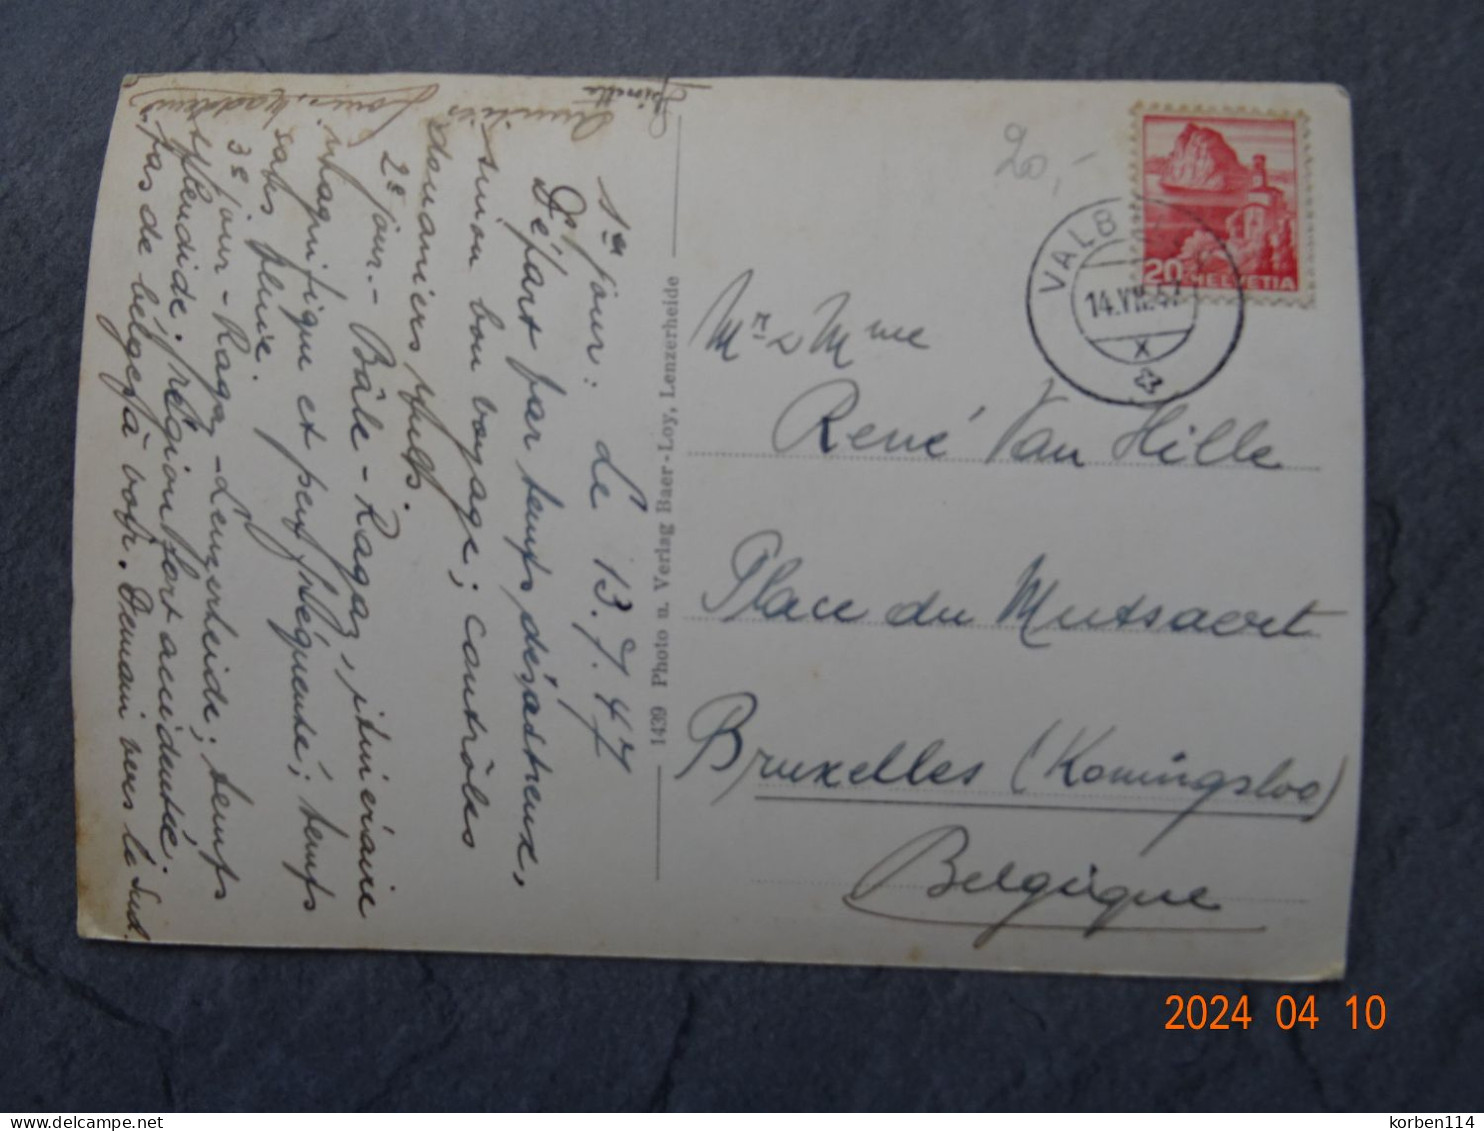 Le 13.7.47
1er jour:
Départ par temps désastreux,
sinon bon voyage; contrôles
douaniers
2e jour. - Bâle - Ragaz, itinéraire
magnifique et peu fréquenté; temps
sans pluie.
3e jour - Ragaz - Lenzerheide; temps
splendide; région fort accidentée.
Pas de belges à voir. Demain vers le Sud.
Amitiés
1439 Photo u. Verlag Baer-Loy, Lenzerheide
20,-
VALB
14.VII.47
X
20
HELVETIA
Mr & Mme
René Van Hille
Place du Mutsaert
Bruxelles (Koningsloo)
Belgique
2024 04 10
korben114